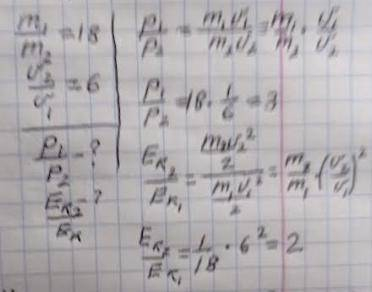 m₁/m₂ = 18
v₂/v₁ = 6
p₁/p₂ - ?
E_K₂/E_K - ?
p₁/p₂ = m₁v₁/m₂v₂ = m₁/m₂ · v₁/v₂
p₁/p₂ = 18 · 1/6 = 3
E_K₂/E_K₁ = (m₂v₂²/2)/(m₁v₁²/2) = m₂/m₁ · (v₂/v₁)²
E_K₂/E_K₁ = 1/18 · 6² = 2